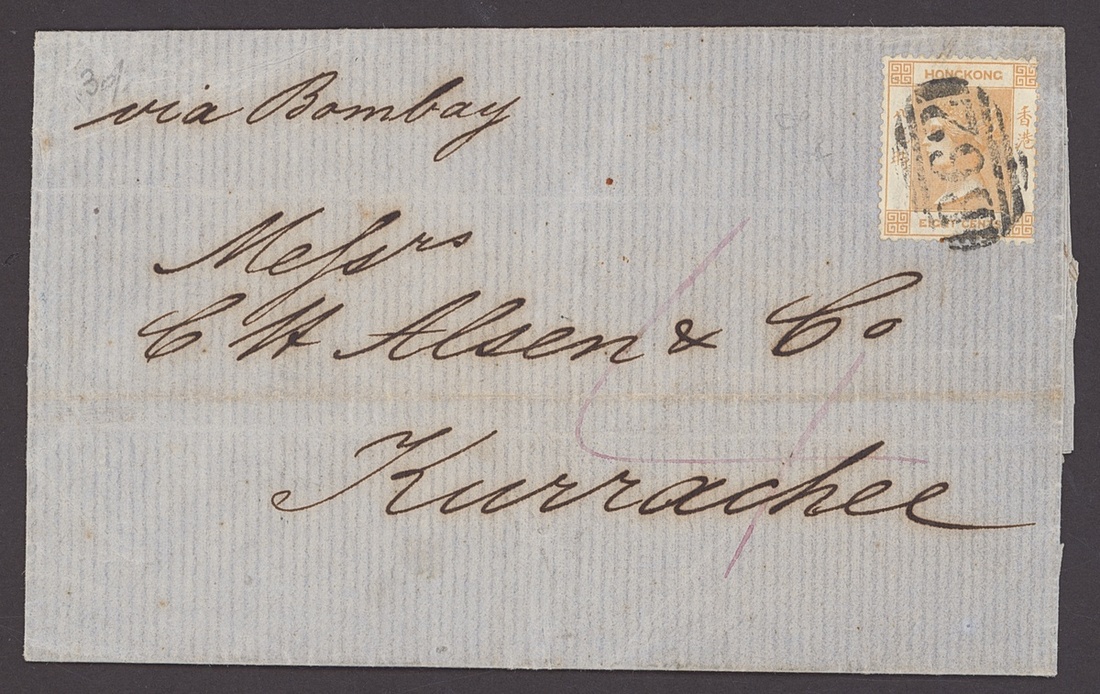 via Bombay
HONGKONG
香港
EIGHT CENTS
D62
Messrs
C H Alsen & Co
Kurrachee
4